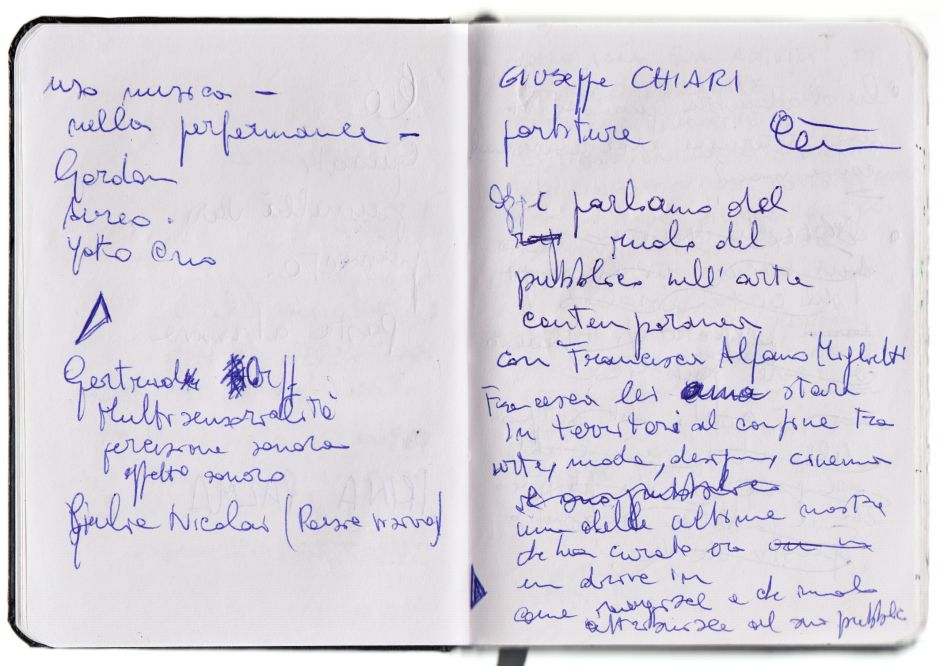 uso musica –
nella performance –
Gordon
Yoko Ono
Gertrud Orff
Multisensorialità
percezione sonora
effetto sonoro
Giulia Niccolai (Poesia visiva)
GIUSEPPE CHIARI
partiture
Oggi parliamo del
ruolo del
pubblico nell'arte
contemporanea
con Francesca Alfano Miglietti
Francesca lei ama stare
in territori al confine tra
arte, moda, design, cinema
il suo pubblico
una delle ultime mostre
che ha curato era
un drive in
come reagisce e che ruolo
attribuisce al suo pubblico